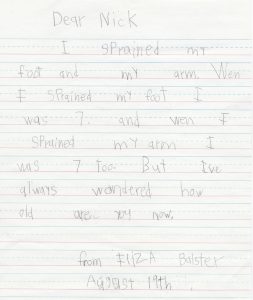 Dear Nick
I sprained my
foot and my arm. Wen
I sprained my foot I
was 7. and wen I
sprained my arm I
was 7 too. But I've
always wondered how
old are you now.
from EliZA Balster
August 19th.